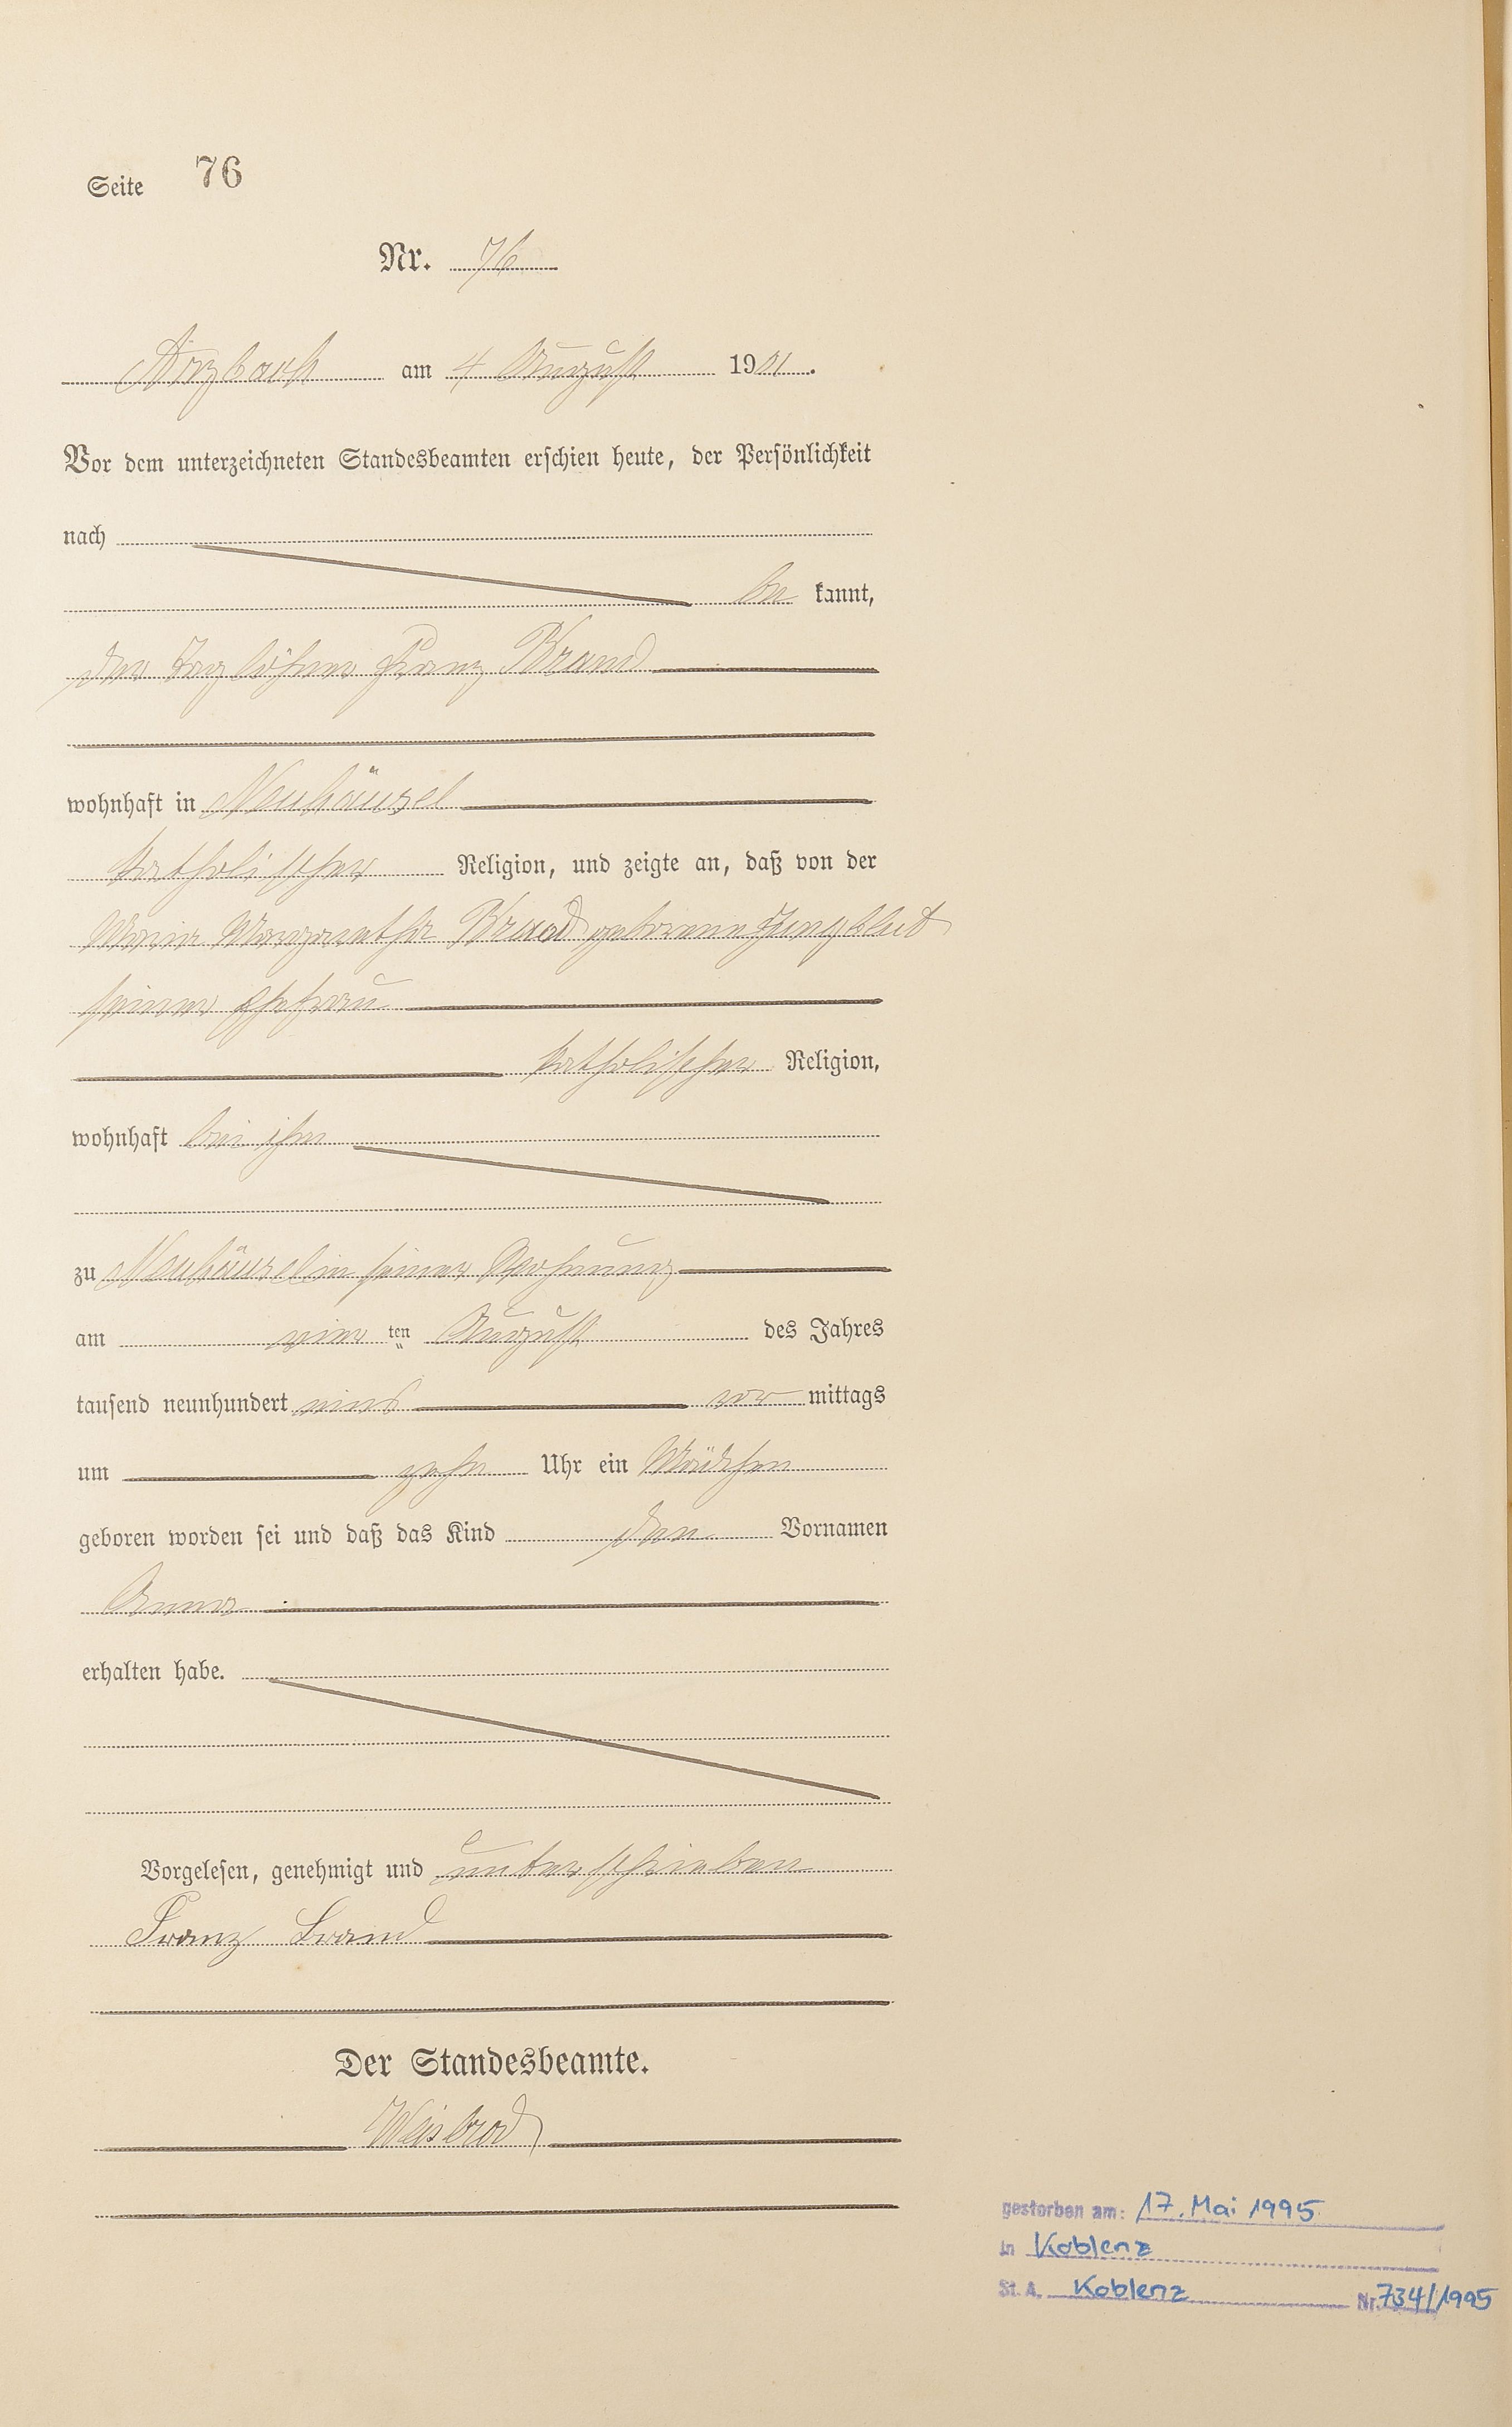 Seite 76
Nr. 76
Arzbach am 4 August 1901.
Vor dem unterzeichneten Standesbeamten erschien heute, der Persönlichkeit
nach
be kannt,
der Taglöhner Franz Brand
wohnhaft in Neuhäusel
katholischer Religion, und zeigte an, daß von der
Maria Margaretha Brand geborene Jungblut
seiner Ehefrau
katholischer Religion,
wohnhaft bei ihm
zu Neuhäusel in seiner Wohnung
am vier ten August des Jahres
tausend neunhundert eins vor mittags
um zehn Uhr ein Mädchen
geboren worden sei und daß das Kind den Vornamen
Anna
erhalten habe.
Vorgelesen, genehmigt und unterschrieben
Franz Brand
Der Standesbeamte.
Weisbrod
gestorben am: 17. Mai 1995
in Koblenz
St. A. Koblenz Nr. 734/1995